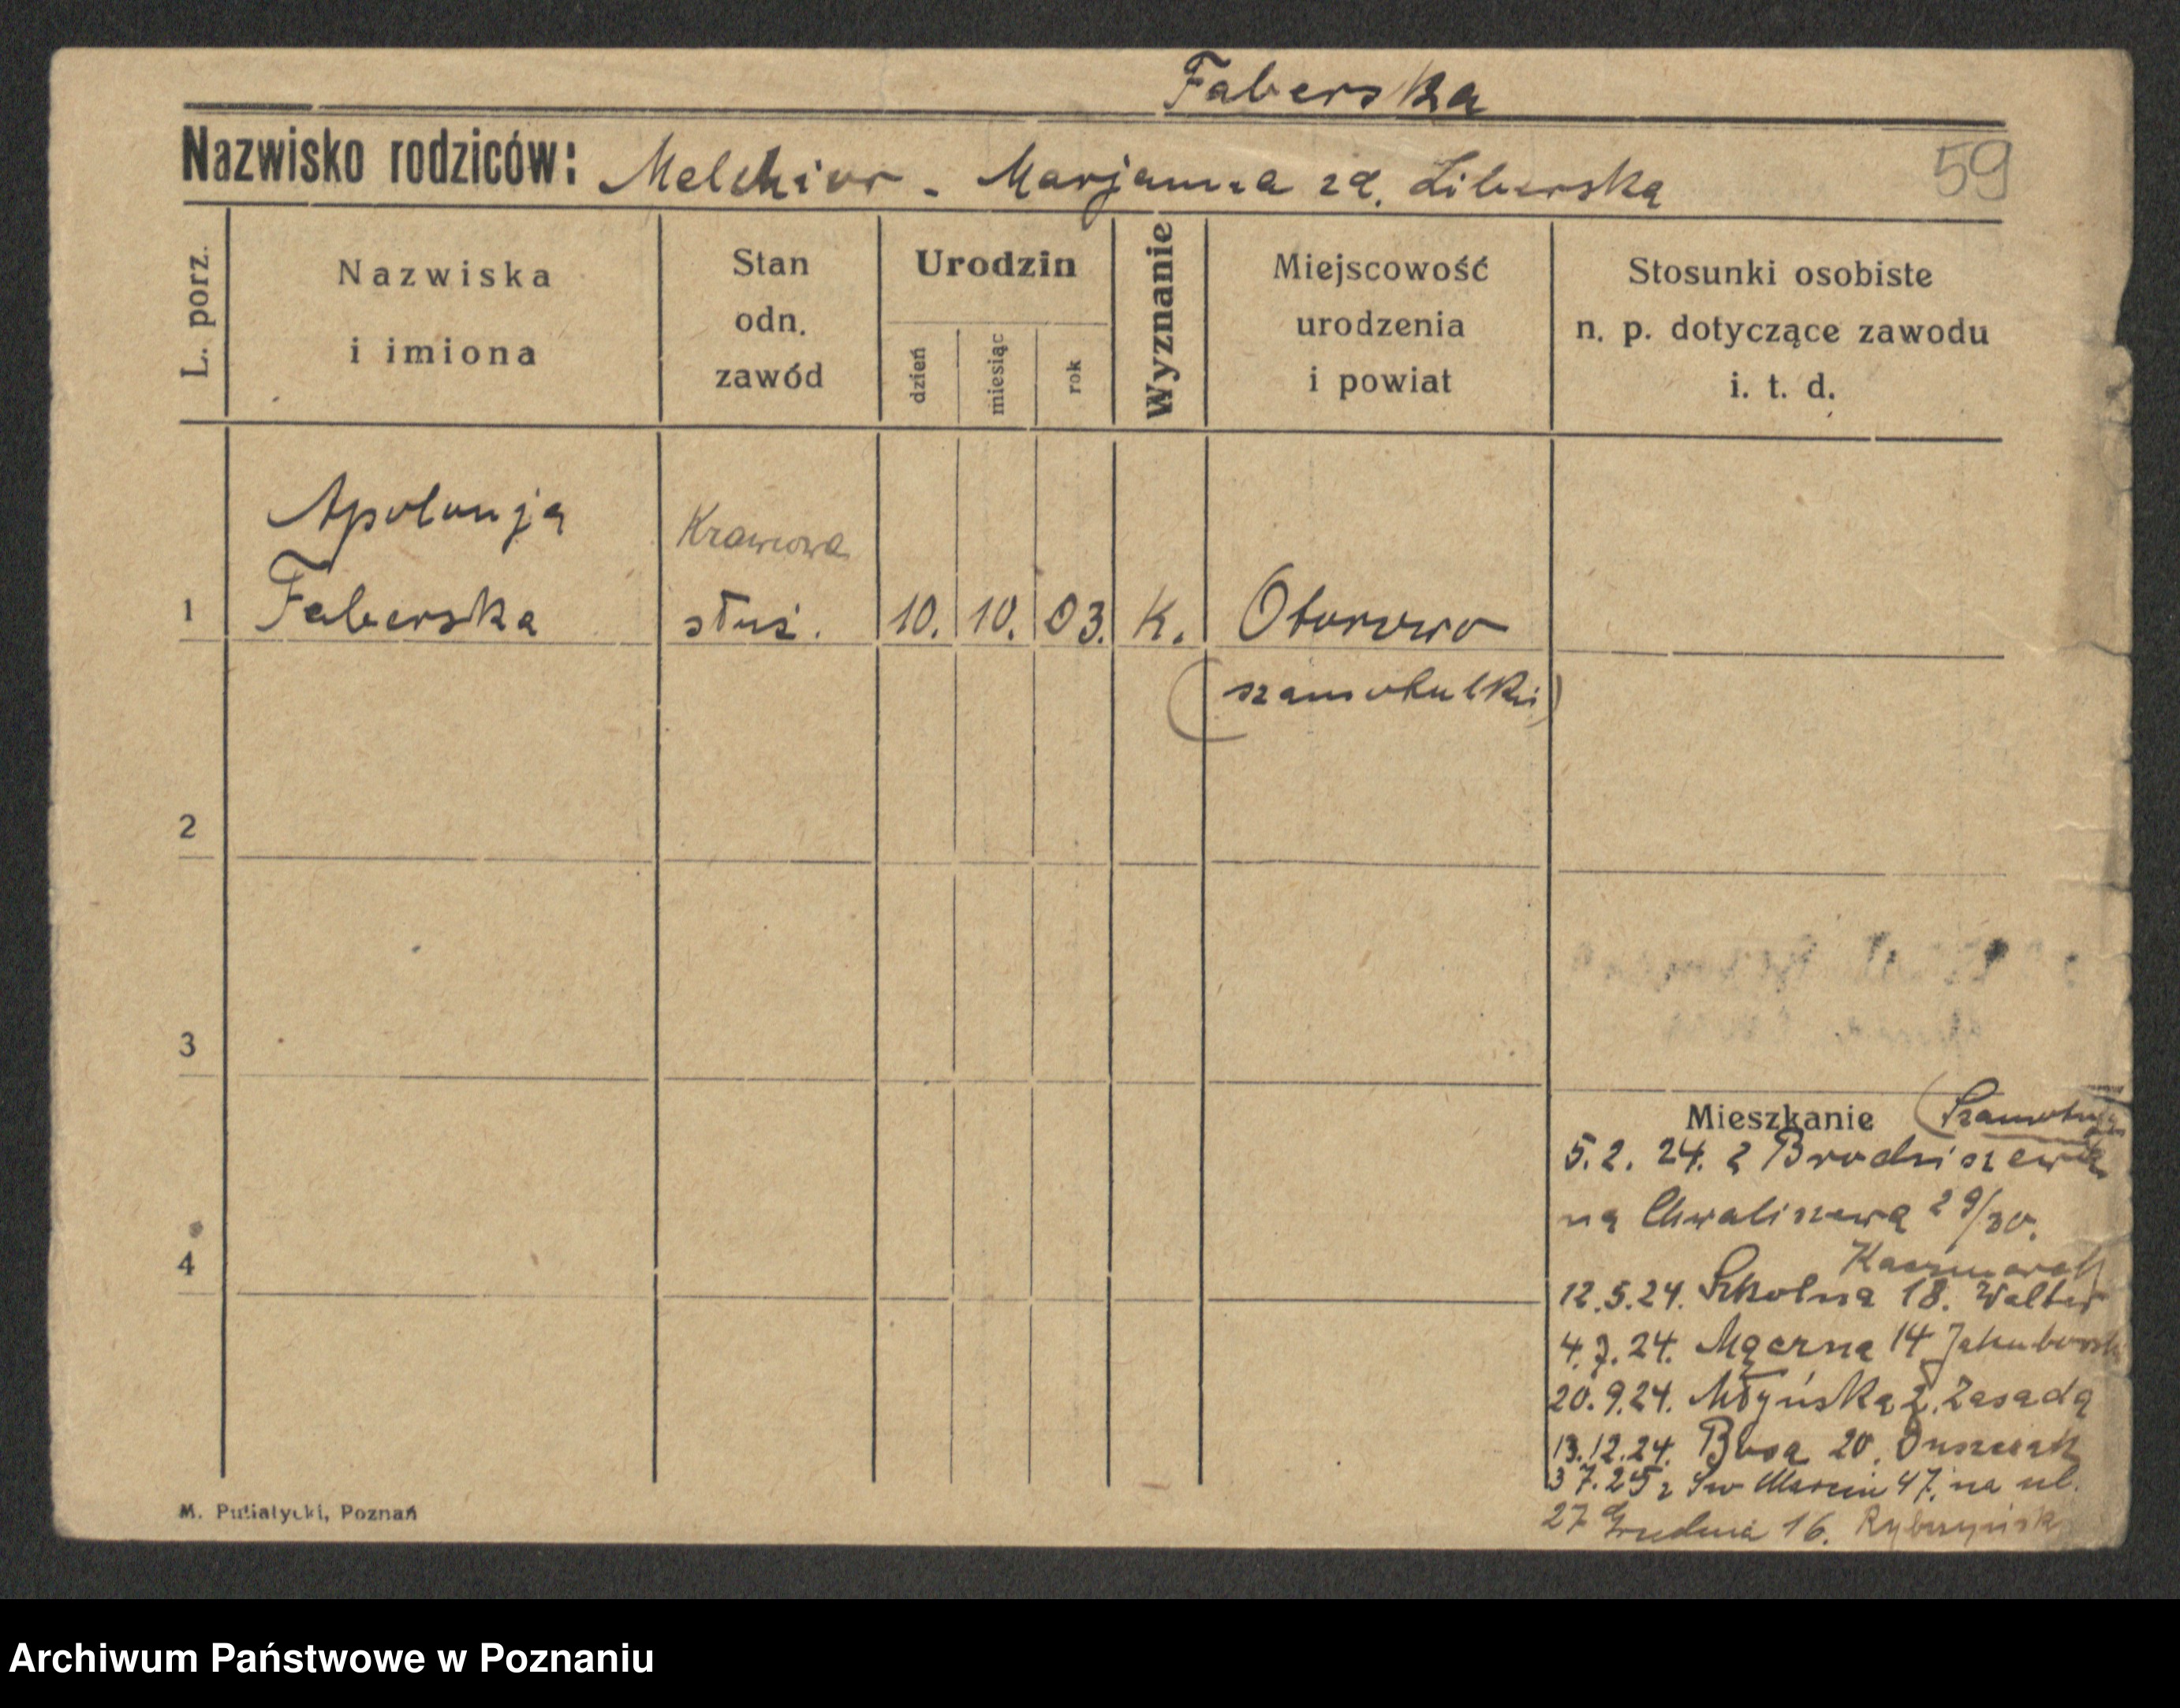 Faberska
Nazwisko rodziców: Melchior - Marjanna zd. Liberska
59
L. porz.
Nazwiska
i imiona
Stan
odn.
zawód
Urodzin
dzień
miesiąc
rok
Wyznanie
Miejscowość
urodzenia
i powiat
Stosunki osobiste
n. p. dotyczące zawodu
i. t. d.
Apolonja
Krawcowa
1 Faberska służ. 10. 10. 03. K. Otorowo
(szamotulski)
2
3
Mieszkanie (Szamotuły
5.2.24. z Brodziszewa
na Chwaliszewa 29/30.
4
Kaczmarek
12.5.24. Szkolna 18. Walter
4.7.24. Mączna 14 Jakubowski
20.9.24. Młyńska 2. Zasada
13.12.24. Bosa 20.
3 7.25 z Św Marcin 47. na ul.
27 Grudnia 16.
M. Putiatycki, Poznań
Archiwum Państwowe w Poznaniu